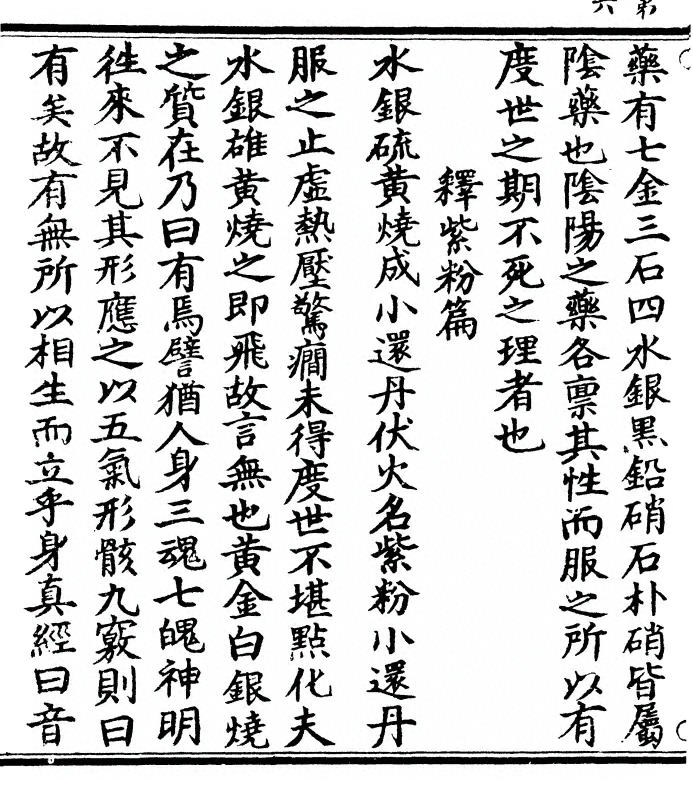 藥有七金三石四水銀黒鉛硝石朴硝皆屬
陰藥也陰陽之藥各禀其性而服之所以有
度世之期不死之理者也
釋紫粉篇
水銀硫黄燒成小還丹伏火名紫粉小還丹
服之止虛熱壓驚癇未得度世不堪點化夫
水銀雄黄燒之即飛故言無也黄金白銀燒
之質在乃曰有焉譬猶人身三魂七魄神明
徃來不見其形應之以五氣形骸九竅則曰
有矣故有無所以相生而立乎身真經曰音